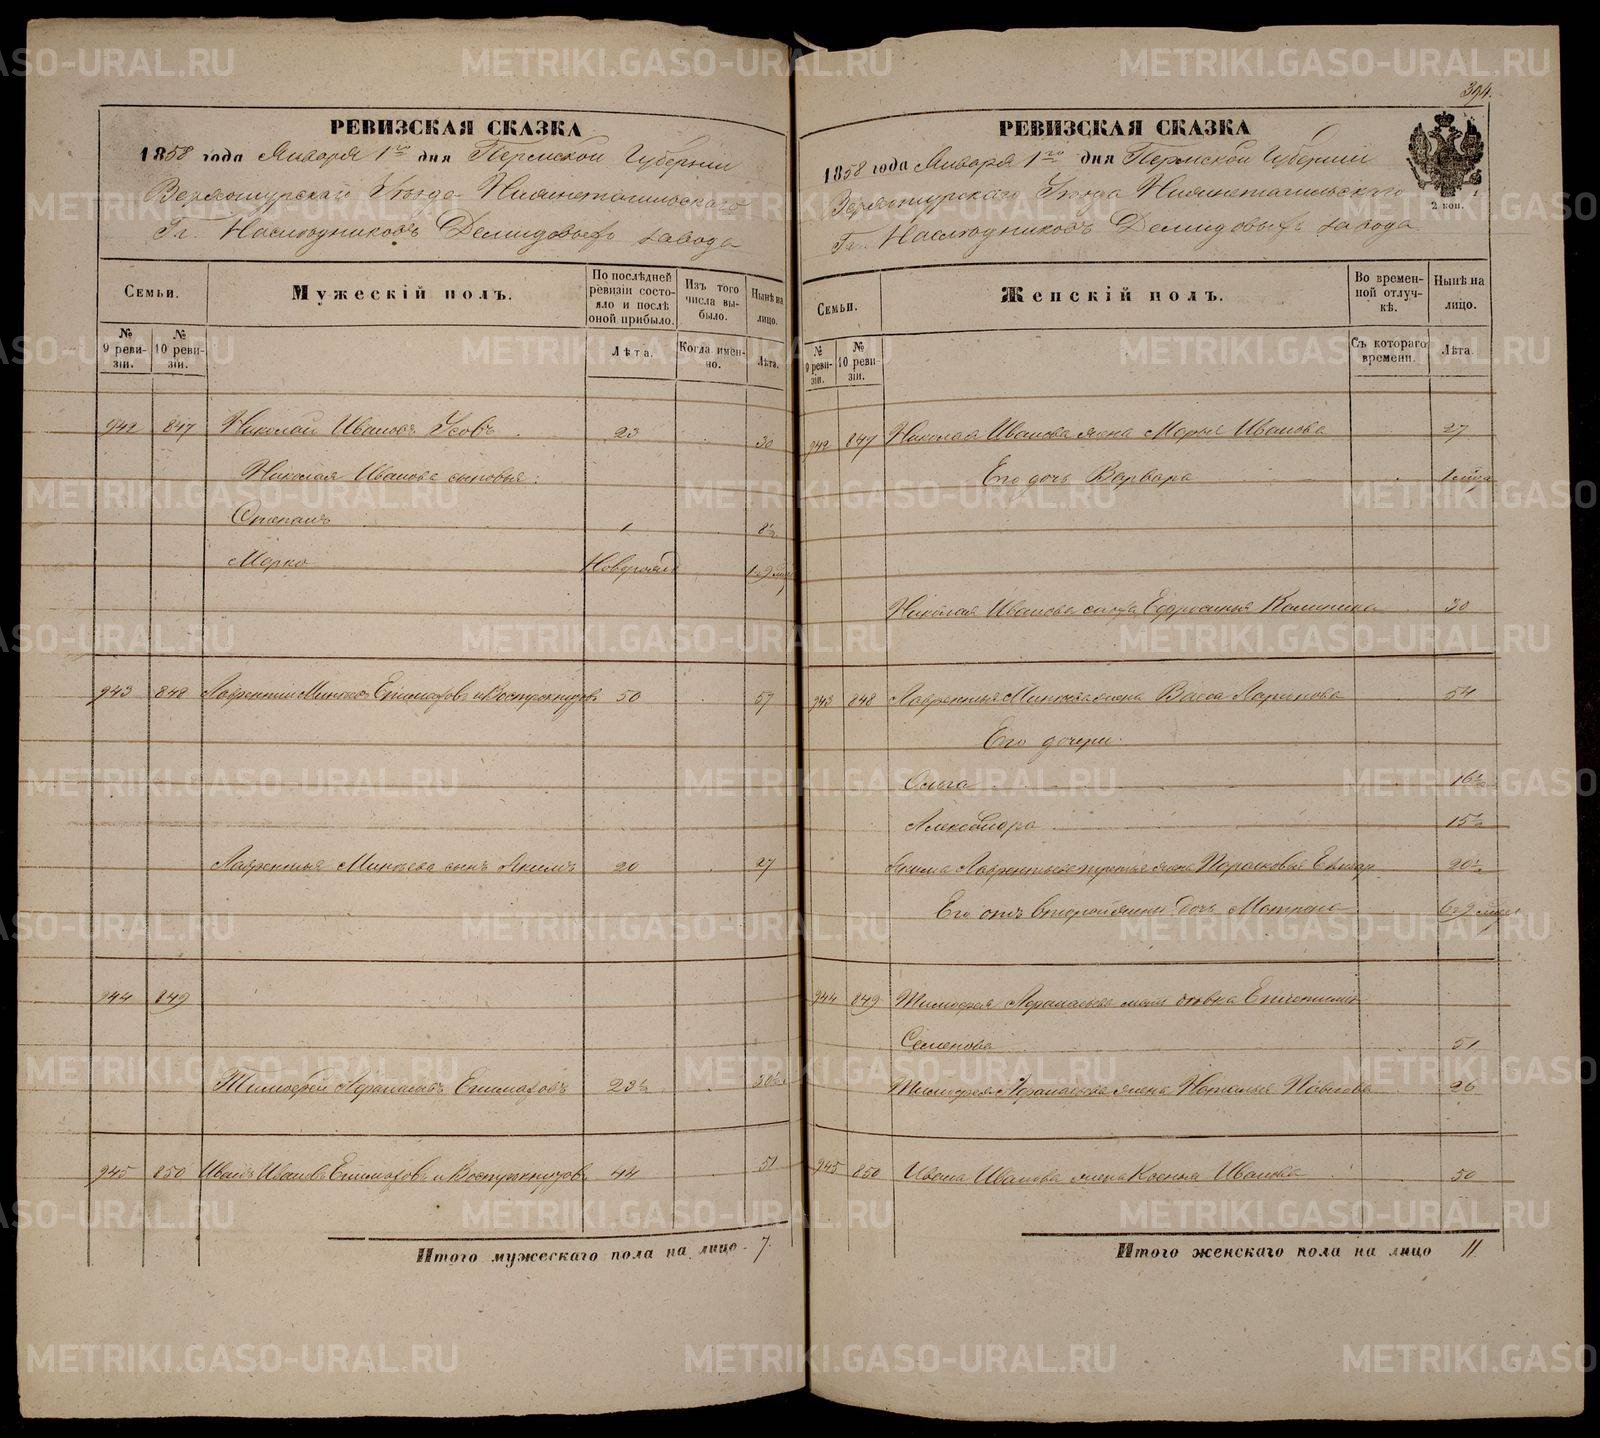 394.
РЕВИЗСКАЯ СКАЗКА
1858 года Января 1го дня Пермской Губернии
Верхотурскаго Уѣзда Нижнетагильскаго
Гг. Наслѣдниковъ Демидовыхъ завода
Семьи.
Мужескій полъ.
По послѣдней ревизіи состояло и послѣ оной прибыло.
Изъ того числа выбыло.
Нынѣ на лицо.
№ 9 ревизіи.
№ 10 ревизіи.
Лѣта.
Когда именно.
Лѣта.
942 847 Николай Ивановъ Усовъ 23 30
Николая Иванова сыновья:
Степанъ 1 8½
Марко Новорожд 1 9 мѣс
943 848 Лаврентій Минѣевъ Епимаховъ и Вострокнутовъ 50 57
Лаврентья Минѣева сынъ Якимъ 20 27
944 849
Тимофей Афанасьевъ Епимаховъ 23½ 30½
945 850 Иванъ Ивановъ Епимаховъ и Вострокнутовъ 44 51
Итого мужескаго пола на лицо 7.
РЕВИЗСКАЯ СКАЗКА
1858 года Января 1го дня Пермской Губерніи
Верхотурскаго Уѣзда Нижнетагильскаго
Гг. Наслѣдниковъ Демидовыхъ завода
2 коп.
Семьи.
Женскій полъ.
Во временной отлучкѣ.
Нынѣ на лицо.
№ 9 ревизіи.
№ 10 ревизіи.
Съ котораго времени.
Лѣта.
942 847 Николая Иванова жена Марья Иванова 27
Его дочь Варвара
Николая Иванова Ефросинья Калинина 30
943 848 Лаврентья Минѣева жена Васса 54
Его дочери:
Ольга 16½
Александра 15½
Якима Лаврентьева третья жена Парасковья 20½
Его отъ второй жены дочь Матрона 6 9 мѣс
944 849 Тимофея Афанасьева мать вдова
Семенова 51
Тимофея Афанасьева жена Наталья Павлова 26
945 850 Ивана Иванова жена Ксенья Иванова 50
Итого женскаго пола на лицо 11.
METRIKI.GASO-URAL.RU